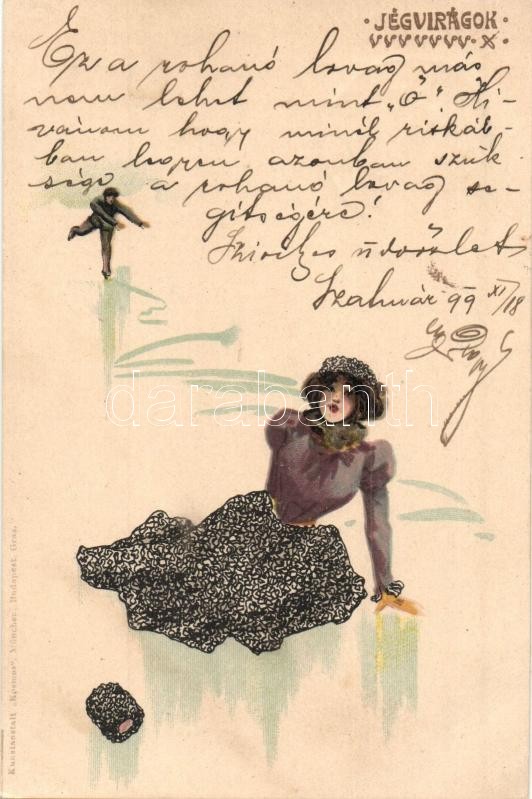 · JÉGVIRÁGOK ·
X.
Ez a rohanó lovag más
nem lehet mint „Ő". Ki-
vánom hogy minél ritkáb-
ban legyen azonban szük-
sége a rohanó lovag se-
gitségére!
Szives üdvözlet
Szatmár 99 XI/18
darabanth
Kunstanstalt „Kosmos", München, Budapest, Graz.